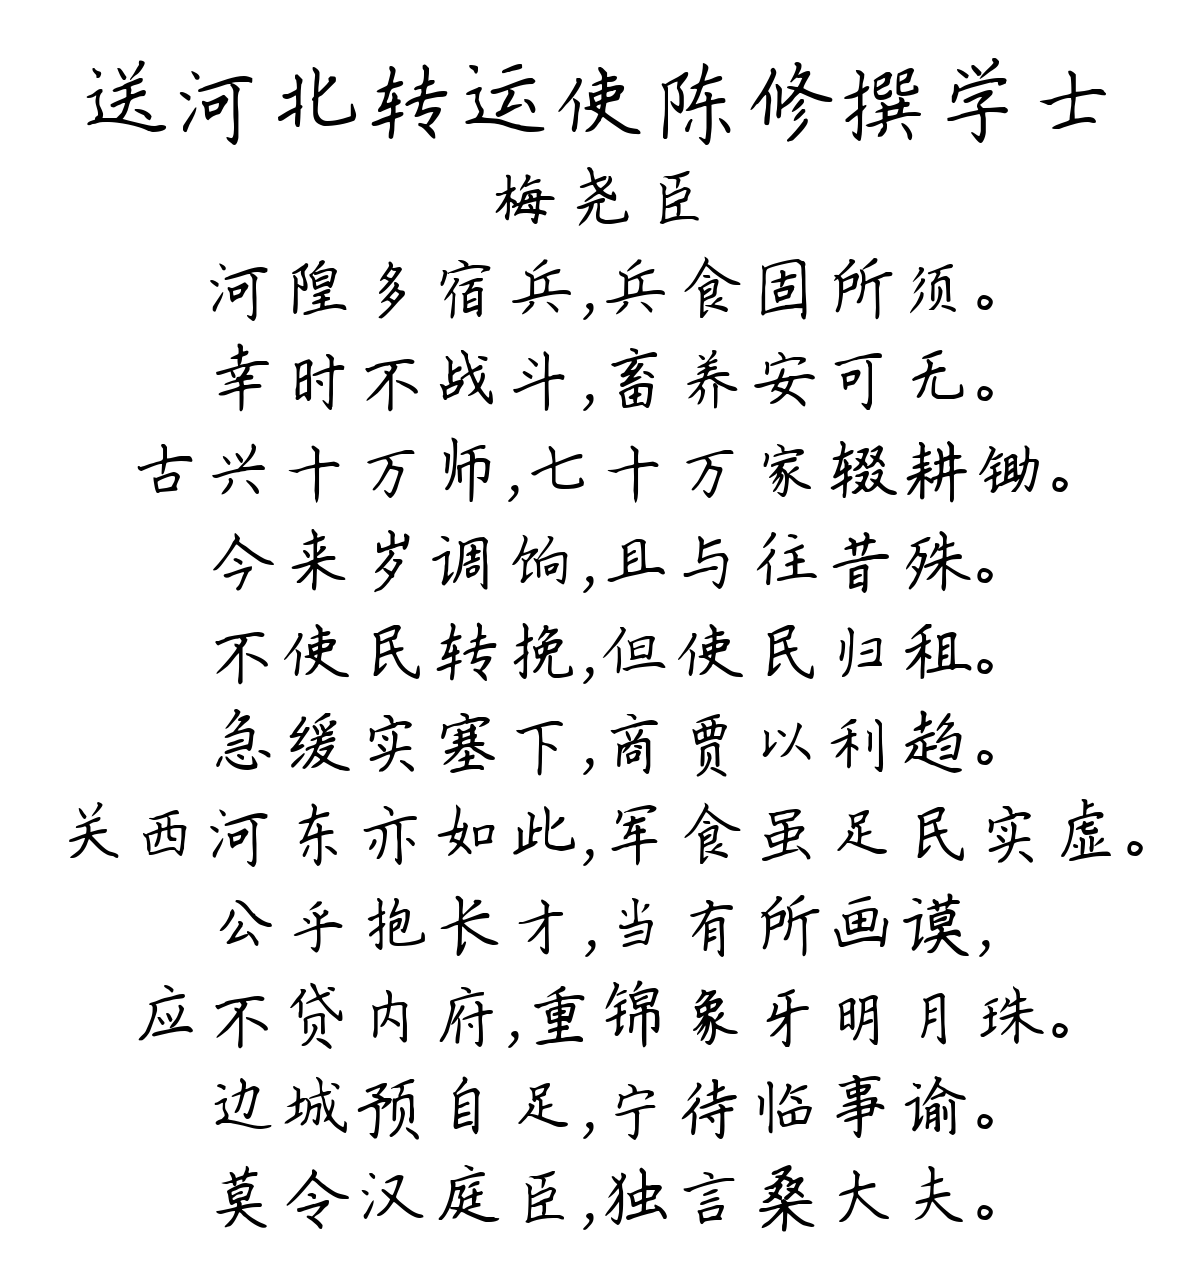 送河北转运使陈修撰学士
梅尧臣
河隍多宿兵,兵食固所须。
幸时不战斗,畜养安可无。
古兴十万师,七十万家辍耕锄。
今来岁调饷,且与往昔殊。
不使民转挽,但使民归租。
急缓实塞下,商贾以利趋。
关西河东亦如此,军食虽足民实虚。
公乎抱长才,当有所画谟,
应不贷内府,重锦象牙明月珠。
边城预自足,宁待临事谕。
莫令汉庭臣,独言桑大夫。